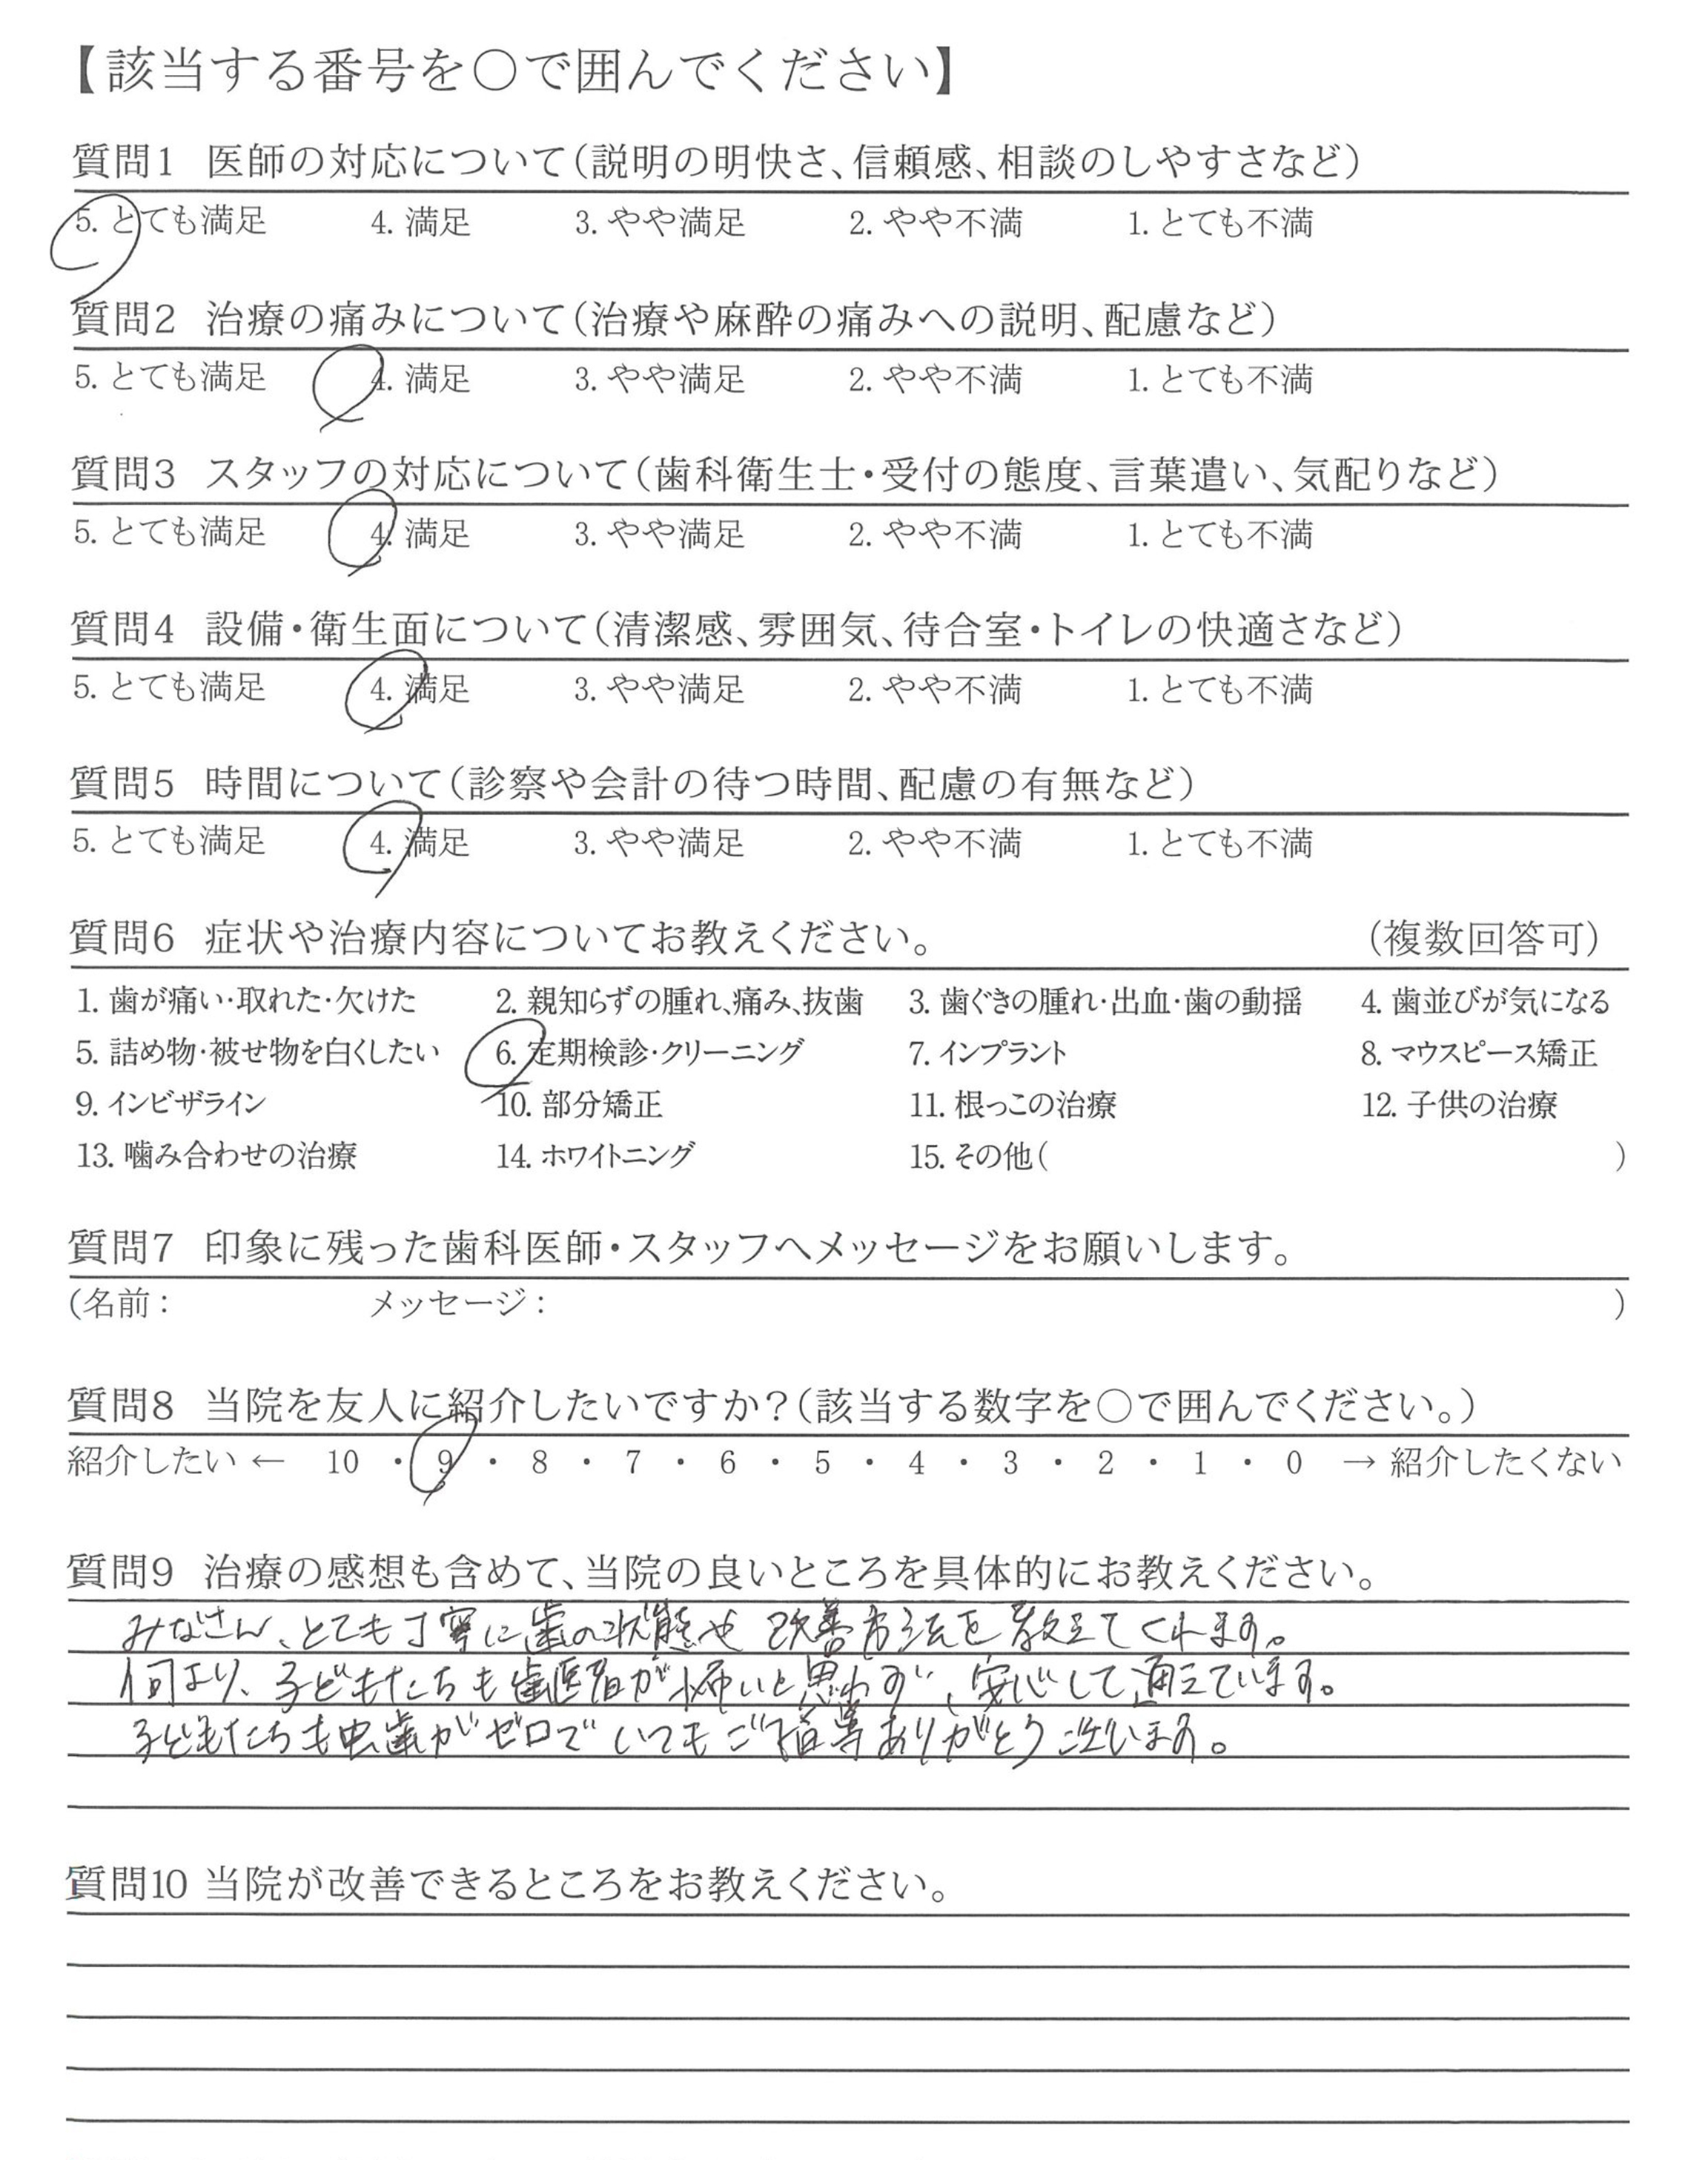 【該当する番号を○で囲んでください】
質問1 医師の対応について(説明の明快さ、信頼感、相談のしやすさなど)
5. とても満足 4. 満足 3. やや満足 2. やや不満 1. とても不満
質問2 治療の痛みについて(治療や麻酔の痛みへの説明、配慮など)
5. とても満足 4. 満足 3. やや満足 2. やや不満 1. とても不満
質問3 スタッフの対応について(歯科衛生士・受付の態度、言葉遣い、気配りなど)
5. とても満足 4. 満足 3. やや満足 2. やや不満 1. とても不満
質問4 設備・衛生面について(清潔感、雰囲気、待合室・トイレの快適さなど)
5. とても満足 4. 満足 3. やや満足 2. やや不満 1. とても不満
質問5 時間について(診察や会計の待つ時間、配慮の有無など)
5. とても満足 4. 満足 3. やや満足 2. やや不満 1. とても不満
質問6 症状や治療内容についてお教えください。 (複数回答可)
1. 歯が痛い・取れた・欠けた 2. 親知らずの腫れ、痛み、抜歯 3. 歯ぐきの腫れ・出血・歯の動揺 4. 歯並びが気になる
5. 詰め物・被せ物を白くしたい 6. 定期検診・クリーニング 7. インプラント 8. マウスピース矯正
9. インビザライン 10. 部分矯正 11. 根っこの治療 12. 子供の治療
13. 噛み合わせの治療 14. ホワイトニング 15. その他( )
質問7 印象に残った歯科医師・スタッフへメッセージをお願いします。
(名前: メッセージ: )
質問8 当院を友人に紹介したいですか?(該当する数字を○で囲んでください。)
紹介したい ← 10 ・ 9 ・ 8 ・ 7 ・ 6 ・ 5 ・ 4 ・ 3 ・ 2 ・ 1 ・ 0 → 紹介したくない
質問9 治療の感想も含めて、当院の良いところを具体的にお教えください。
みなさん、とても丁寧に歯の状態や改善方法を教えてくれます。
何より、子どもたちも歯医者が怖いと思わず、安心して通えています。
子どもたちも虫歯がゼロでいつもご指導ありがとうございます。
質問10 当院が改善できるところをお教えください。